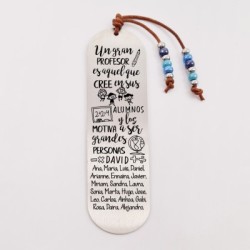 Un gran
PROFESOR
es aquel que
CREE en sus
ALUMNOS
2024
y los
MOTIVA a SER
grandes
PERSONAS
DAVID
Ana, Maria, Luis, Daniel,
Arianne, Ennaira, Javier,
Miriam, Sandra, Laura,
Sonia, Marta, Hugo, Jose,
Leo, Carlos, Ainhoa, Gabi,
Rosa, Daira, Alejandro,